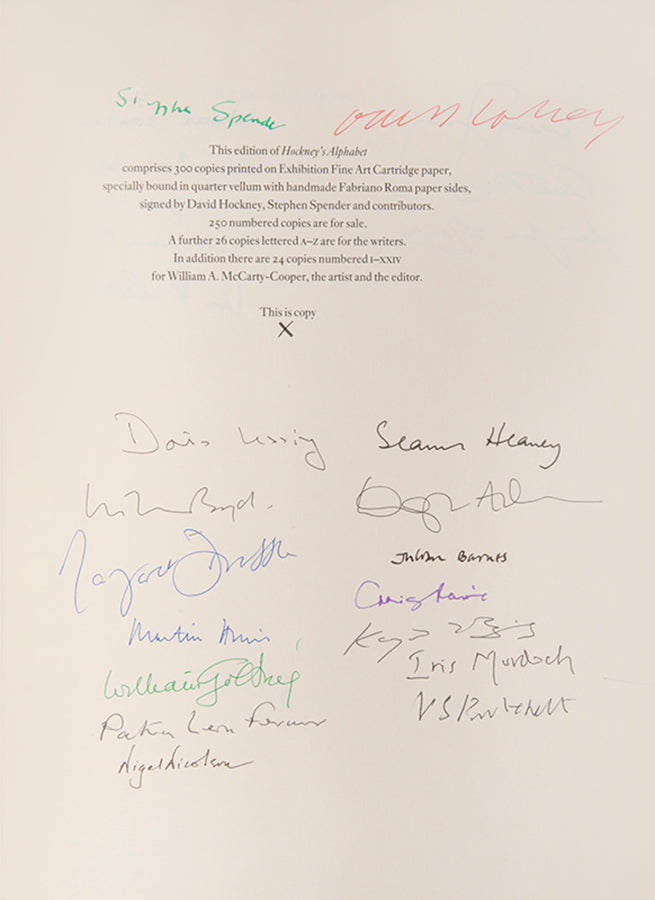 Stephen Spender David Hockney
This edition of Hockney's Alphabet
comprises 300 copies printed on Exhibition Fine Art Cartridge paper,
specially bound in quarter vellum with handmade Fabriano Roma paper sides,
signed by David Hockney, Stephen Spender and contributors.
250 numbered copies are for sale.
A further 26 copies lettered A–Z are for the writers.
In addition there are 24 copies numbered I–XXIV
for William A. McCarty-Cooper, the artist and the editor.
This is copy
X
Doris Lessing Seamus Heaney
William Boyd.
Margaret Drabble Julian Barnes
Craig Raine
Martin Amis
Iris Murdoch
William Golding V S Pritchett
Patrick Leigh Fermor
Nigel Nicolson